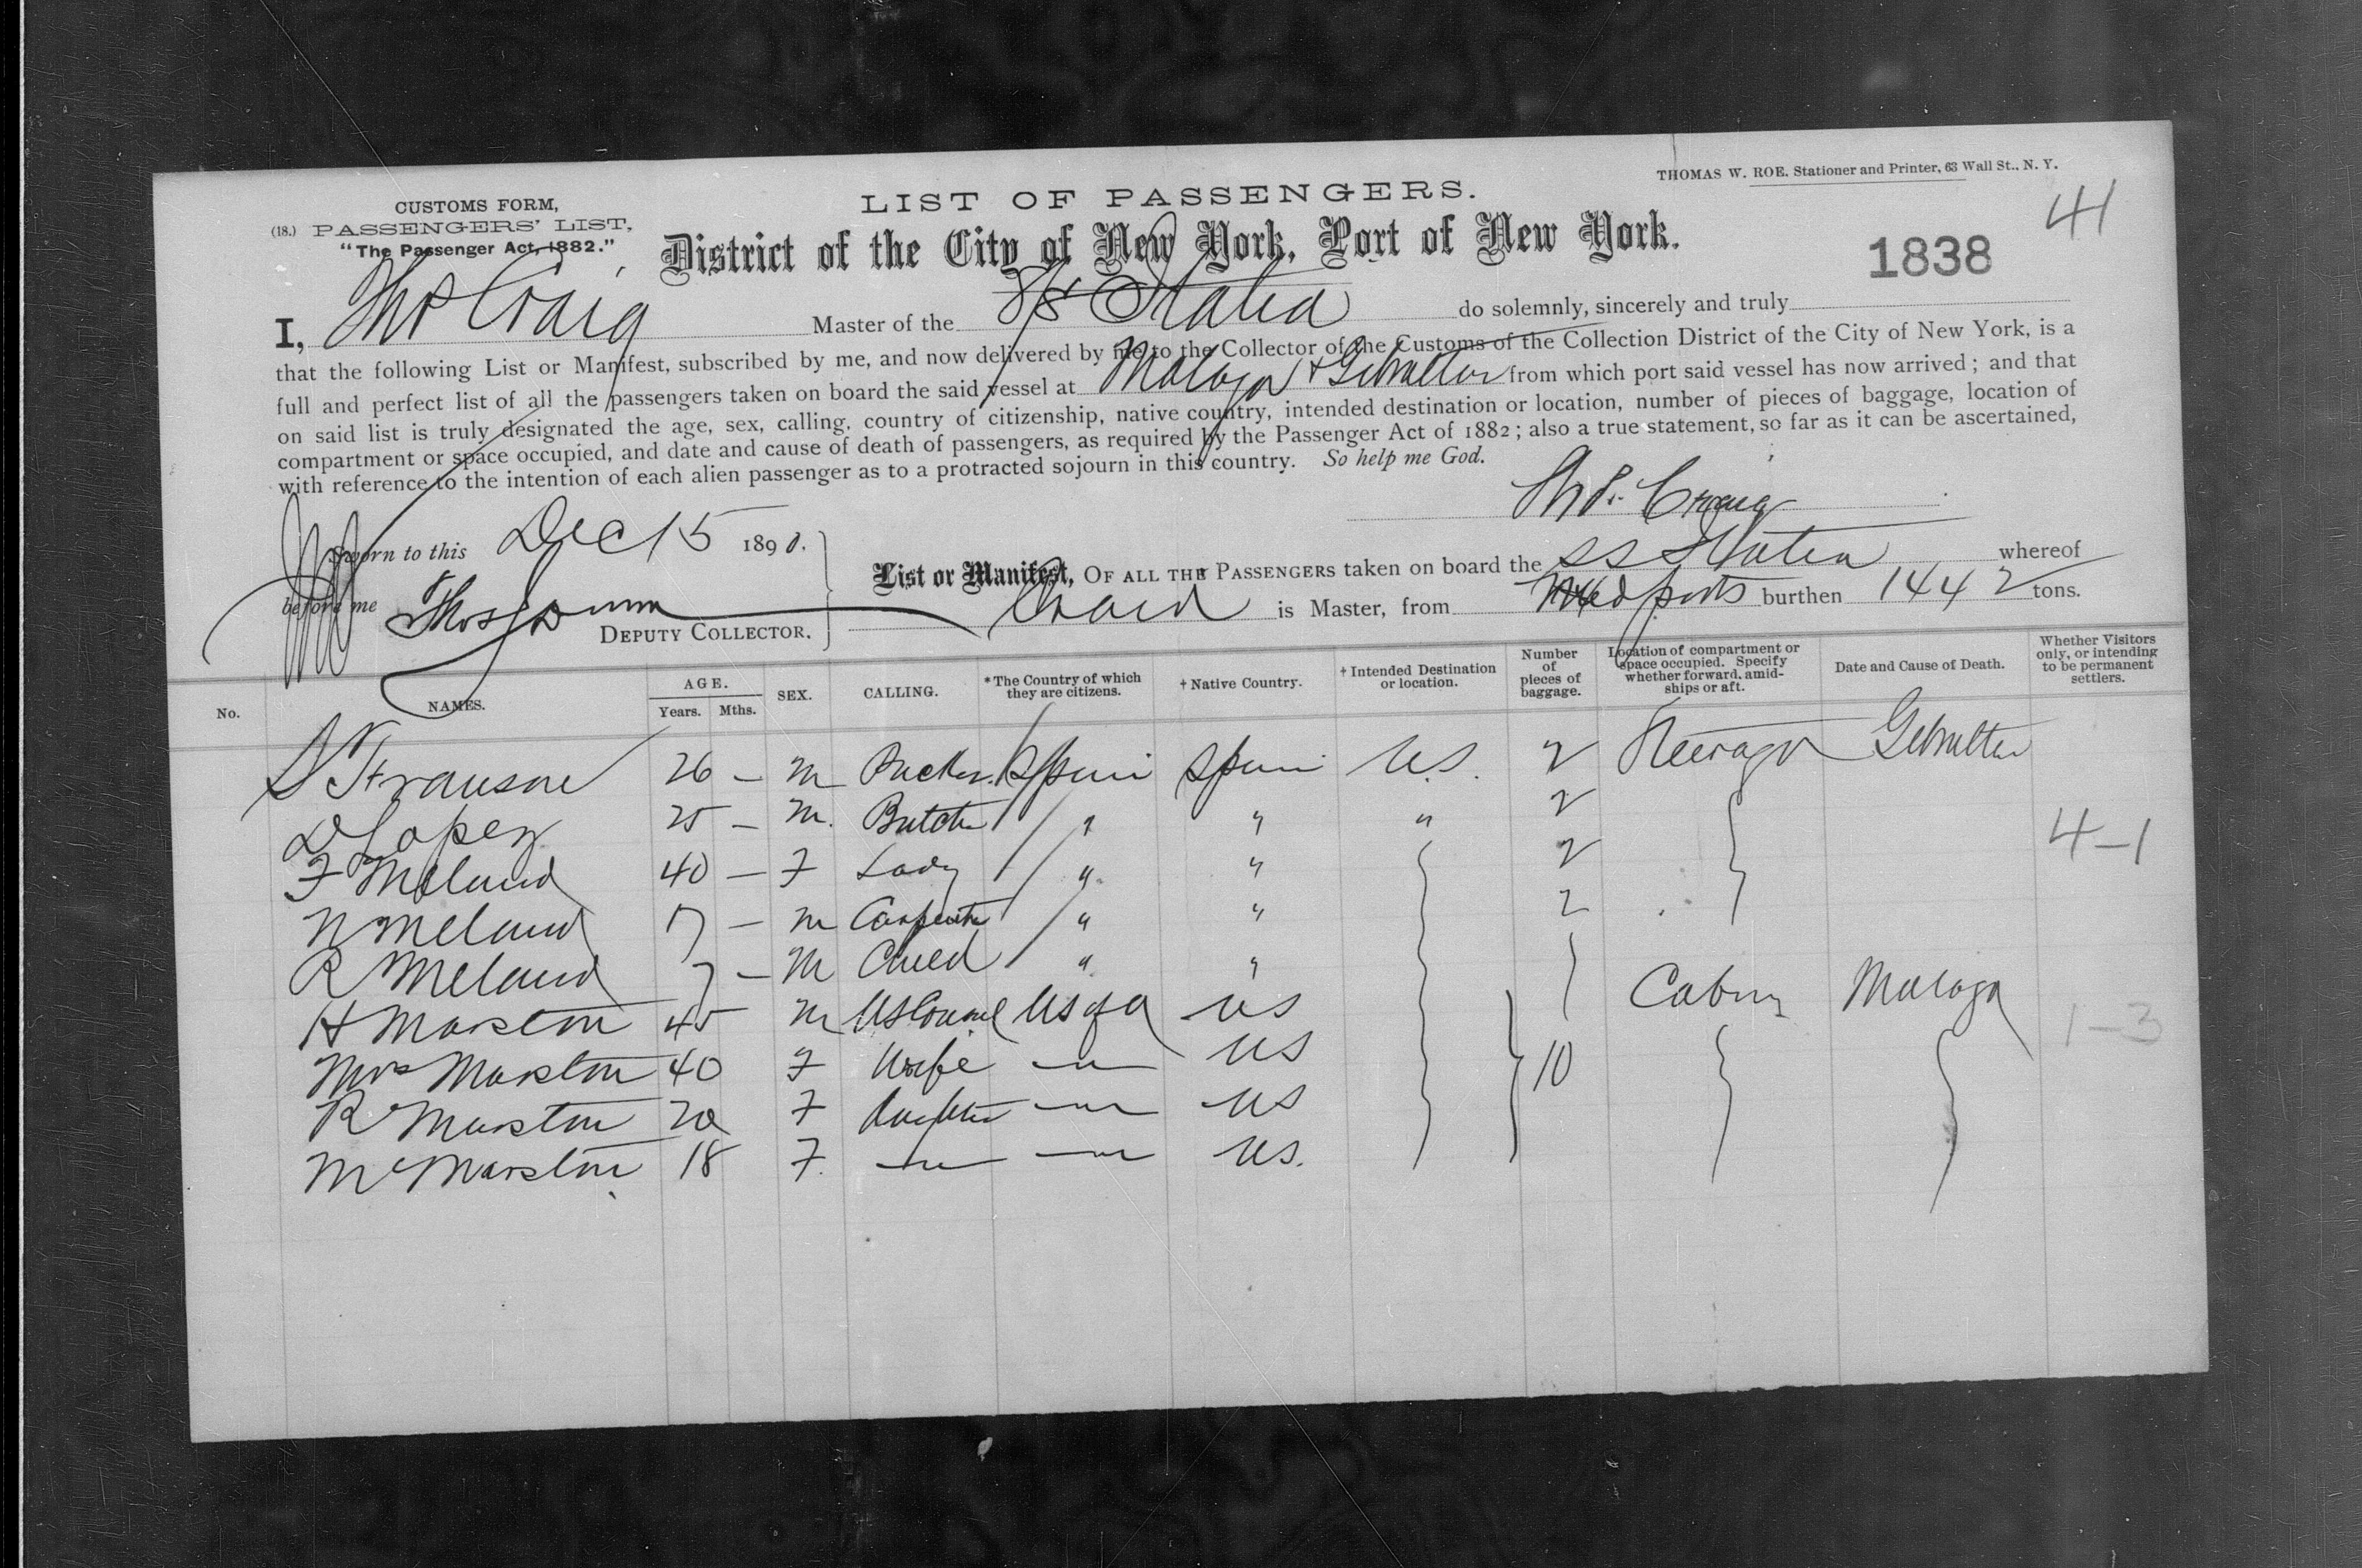 THOMAS W. ROE. Stationer and Printer, 63 Wall St., N. Y.
41
CUSTOMS FORM,
(18.) PASSENGERS' LIST,
"The Passenger Act, 1882."
LIST OF PASSENGERS.
District of the City of New York, Port of New York.
1838
I, Thos Craig Master of the S/S Italia do solemnly, sincerely and truly
that the following List or Manifest, subscribed by me, and now delivered by me to the Collector of the Customs of the Collection District of the City of New York, is a
full and perfect list of all the passengers taken on board the said vessel at Malaga & Gibraltar from which port said vessel has now arrived; and that
on said list is truly designated the age, sex, calling, country of citizenship, native country, intended destination or location, number of pieces of baggage, location of
compartment or space occupied, and date and cause of death of passengers, as required by the Passenger Act of 1882; also a true statement, so far as it can be ascertained,
with reference to the intention of each alien passenger as to a protracted sojourn in this country. So help me God.
Thos. Craig
Sworn to this Dec 15 1890.
before me Thos Dunn
DEPUTY COLLECTOR.
List or Manifest, OF ALL THE PASSENGERS taken on board the SS Italia whereof
Craig is Master, from Med ports burthen 1442 tons.
No. NAMES. AGE. Years. Mths. SEX. CALLING. *The Country of which they are citizens. †Native Country. †Intended Destination or location. Number of pieces of baggage. Location of compartment or space occupied. Specify whether forward, amidships or aft. Date and Cause of Death. Whether Visitors only, or intending to be permanent settlers.
26 — M Spain Spain U.S. 2 Steerage Gibraltar
D Lopez 25 — M. Butcher " " " 2
F Meland 40 — F Lady " " 2 4-1
N Meland 17 — M Carpenter " " 2
R Meland 7 — M Child " "
H Marston 45 M US Consul US of A US Cabin Malaga 1-3
Mrs Marston 40 F Wife — " — US 10
R Marston 20 F Daughter — " — US
M Marston 18 F. — " — — " — US.